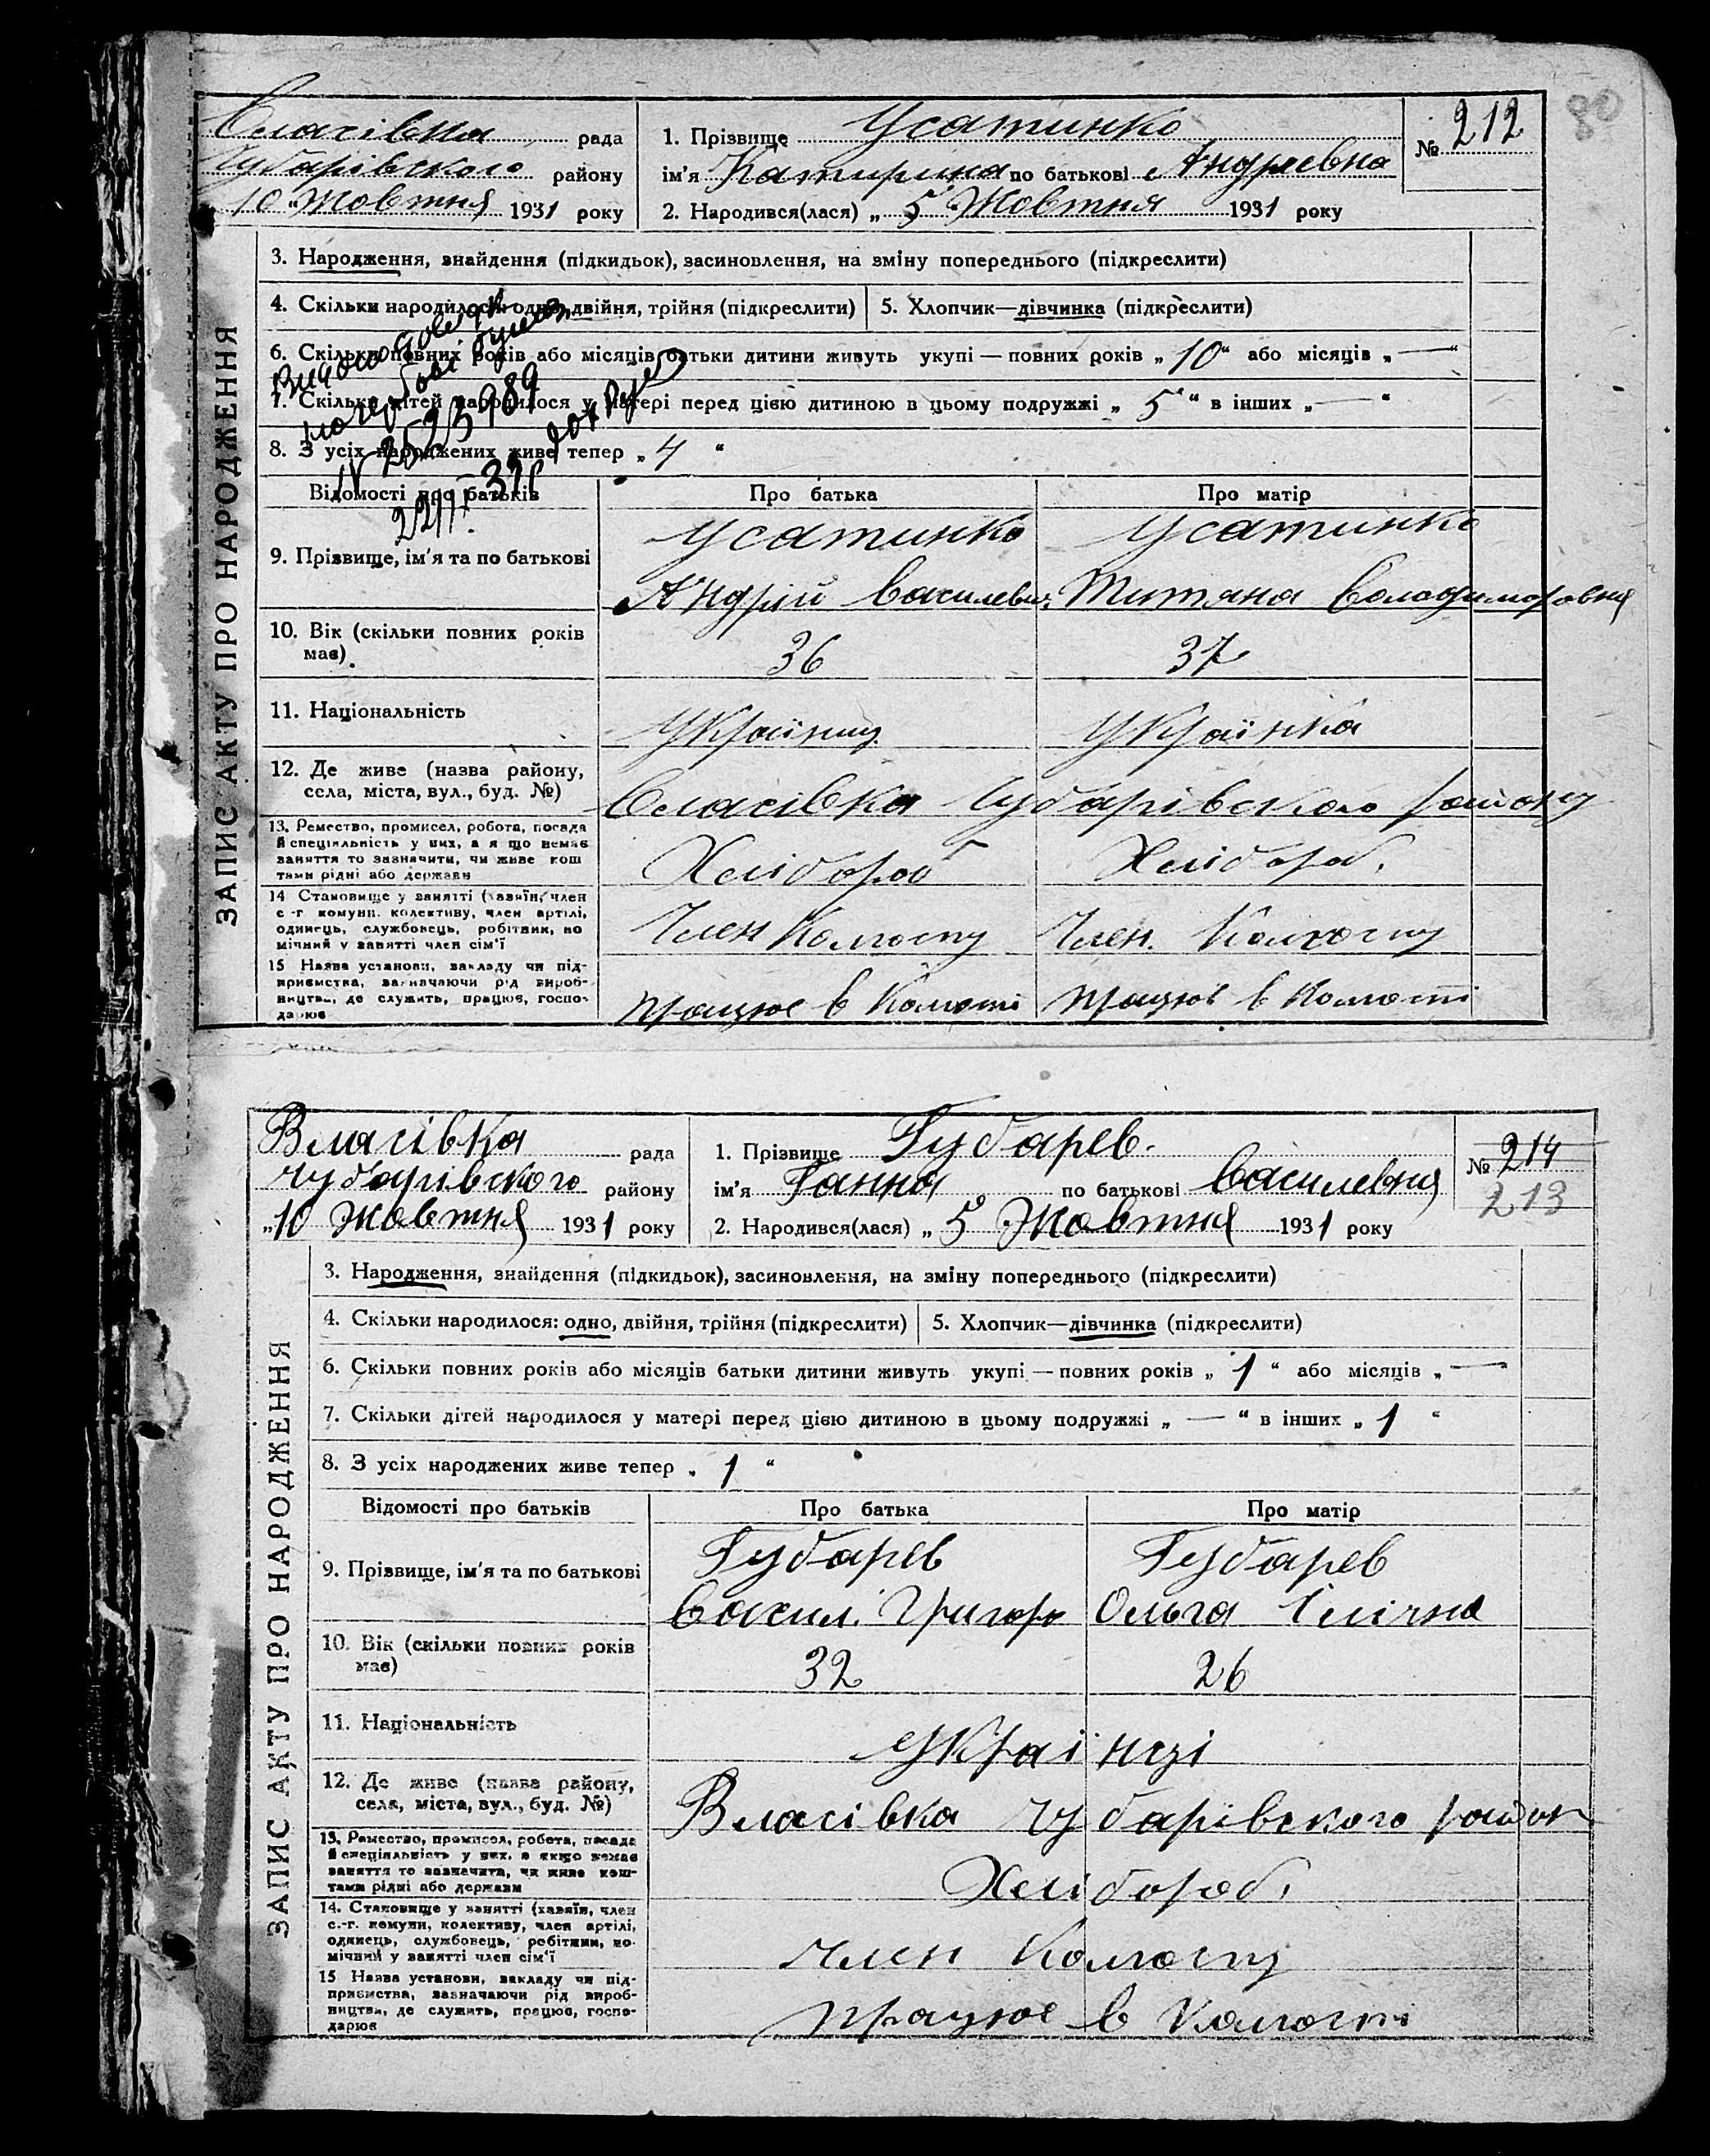 80
Власівка рада
Чубарівського району
"10" Жовтня 1931 року
1. Прізвище Усатинко
ім'я Катирина по батькові Андреевна
2. Народився(лася) „ 5 Жовтня 1931 року
№ 212
ЗАПИС АКТУ ПРО НАРОДЖЕННЯ
3. Народження, знайдення (підкидьок), засиновлення, на зміну попереднього (підкреслити)
4. Скільки народилося: одно, двійня, трійня (підкреслити) 5. Хлопчик—дівчинка (підкреслити)
6. Скільки повних років або місяців батьки дитини живуть укупі — повних років „ 10 “ або місяців „ — “
7. Скільки дітей народилося у матері перед цією дитиною в цьому подружжі „ 5 “ в інших „ — “
8. З усіх народжених живе тепер „ 4 “
Відомості про батьків Про батька Про матір
9. Прізвище, ім'я та по батькові
Усатинко Усатинко
Андрій Василевич Титяна Володиморовна
10. Вік (скільки повних років
має) 36 37
11. Національність Українец Українка
12. Де живе (назва району,
села, міста, вул., буд. №) Власівка Чубарівского району
13. Ремество, промисел, робота, посада
й спеціяльність у них, а я що немає
заняття то зазначити, чи живе кош
тами рідні або держави
Хлібороб Хлібороб.
14 Становище у занятті (хазяїн, член
с.-г. комуни, колективу, член артілі,
одинець, службовець, робітник, по
мічний у занятті член сім'ї
Член Колгоспу Член. Колгоспу
15 Назва установи, закладу чи під-
приємства, зазначаючи рід вироб-
ництва, де служить, працює, госпо-
дарює
працює в Колгоспі працює в Колгоспі
Власівка рада
Чубарівського району
„10 Жовтня 1931 року
1. Прізвище Губарев.
ім'я Ганна по батькові Василевна
2. Народився(лася) „ 5 Жовтня 1931 року
№ 214
213
ЗАПИС АКТУ ПРО НАРОДЖЕННЯ
3. Народження, знайдення (підкидьок), засиновлення, на зміну попереднього (підкреслити)
4. Скільки народилося: одно, двійня, трійня (підкреслити) 5. Хлопчик—дівчинка (підкреслити)
6. Скільки повних років або місяців батьки дитини живуть укупі — повних років „ 1 “ або місяців „ —
7. Скільки дітей народилося у матері перед цією дитиною в цьому подружжі „ — “ в інших „ 1 “
8. З усіх народжених живе тепер „ 1 “
Відомості про батьків Про батька Про матір
9. Прізвище, ім'я та по батькові
Губарев Губарев
Васил. Григоро Ольга Ілічна
10. Вік (скільки повних років
має) 32 26
11. Національність Українці
12. Де живе (назва району,
села, міста, вул., буд. №) Власівка Чубарівского район
13. Ремество, промисел, робота, посада
й спеціяльність у них, а якщо немає
заняття то зазначити, чи живе кош-
тами рідні або держави
Хлібороб.
14. Становище у занятті (хазяїн, член
с.-г. комуни, колективу, член артілі,
одинець, службовець, робітник, по-
мічний у занятті член сім'ї
член Колгоспу
15 Назва установи, закладу чи під-
приємства, зазначаючи рід вироб-
ництва, де служить, працює, госпо-
дарює
працює в Колгоспі